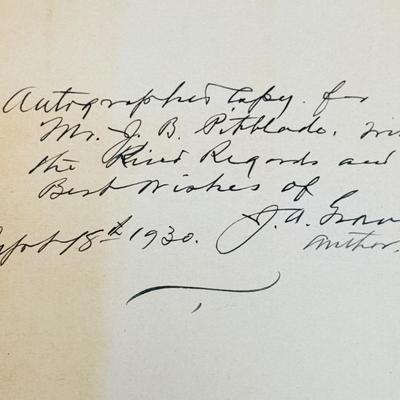 Autographed Copy. for
Mr. J. B. Pitblado. wi
the Kind Regards and
Best Wishes of
Sept 18th 1930. J. A.
Author.